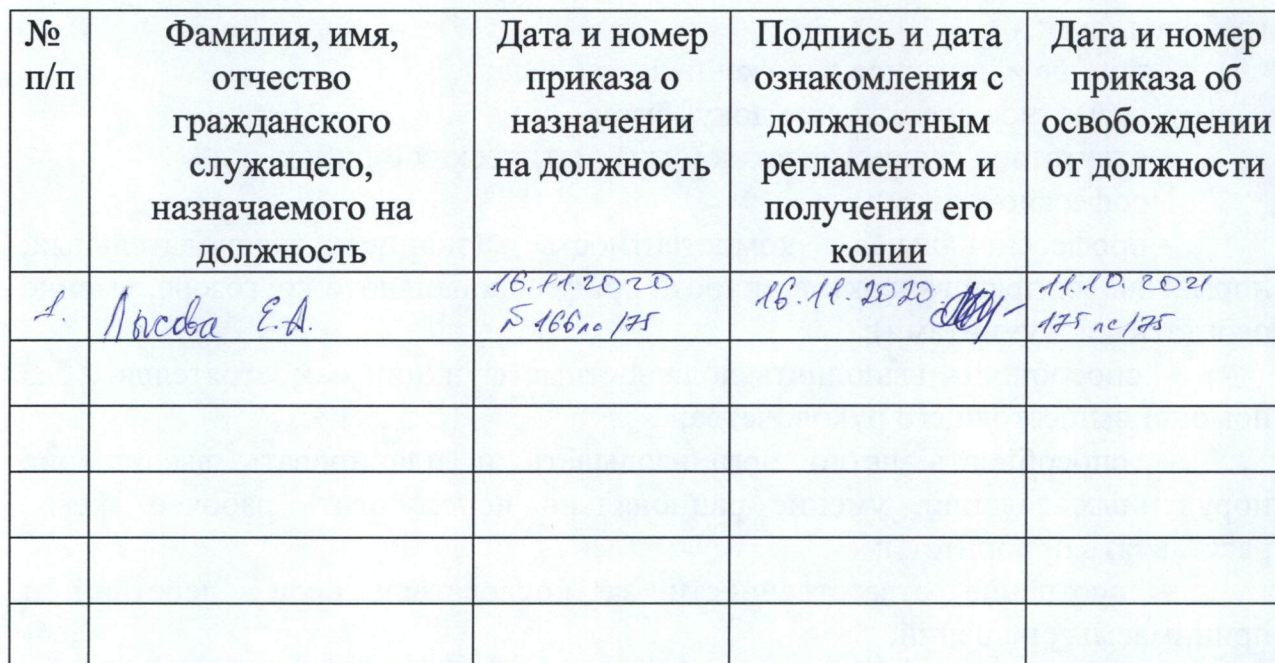 № п/п
Фамилия, имя,
отчество
гражданского
служащего,
назначаемого на
должность
Дата и номер
приказа о
назначении
на должность
Подпись и дата
ознакомления с
должностным
регламентом и
получения его
копии
Дата и номер
приказа об
освобождении
от должности
1.
Лысова Е.А.
16.11.2020
№ 166лс/75
16.11.2020
11.10.2021
175 лс/75